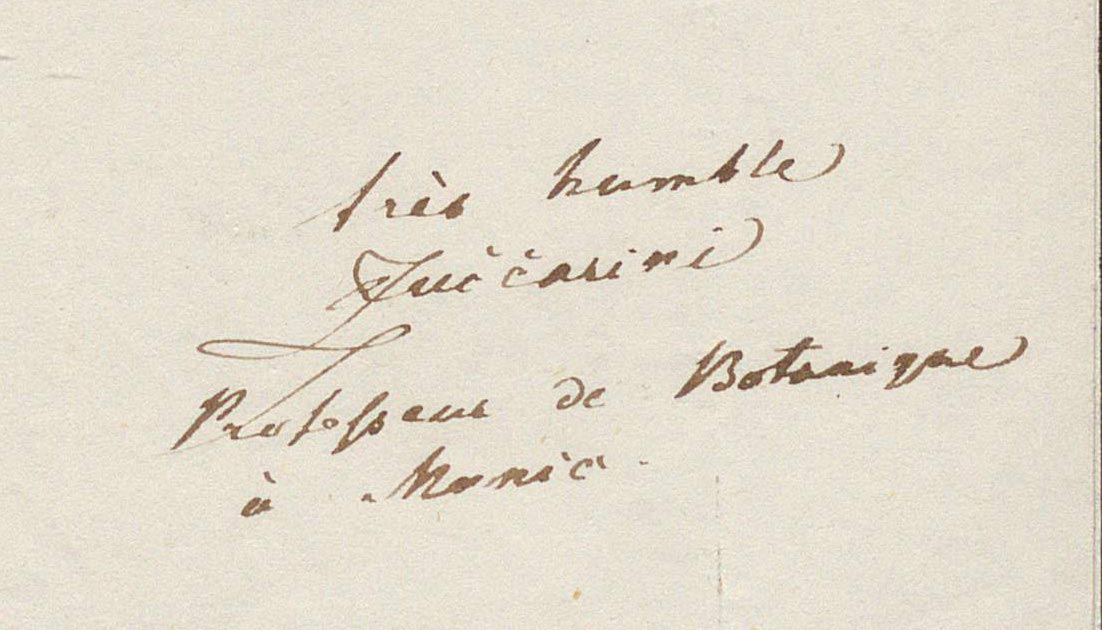 très humble
Zuccarini
Professeur de Botanique
à Munic.